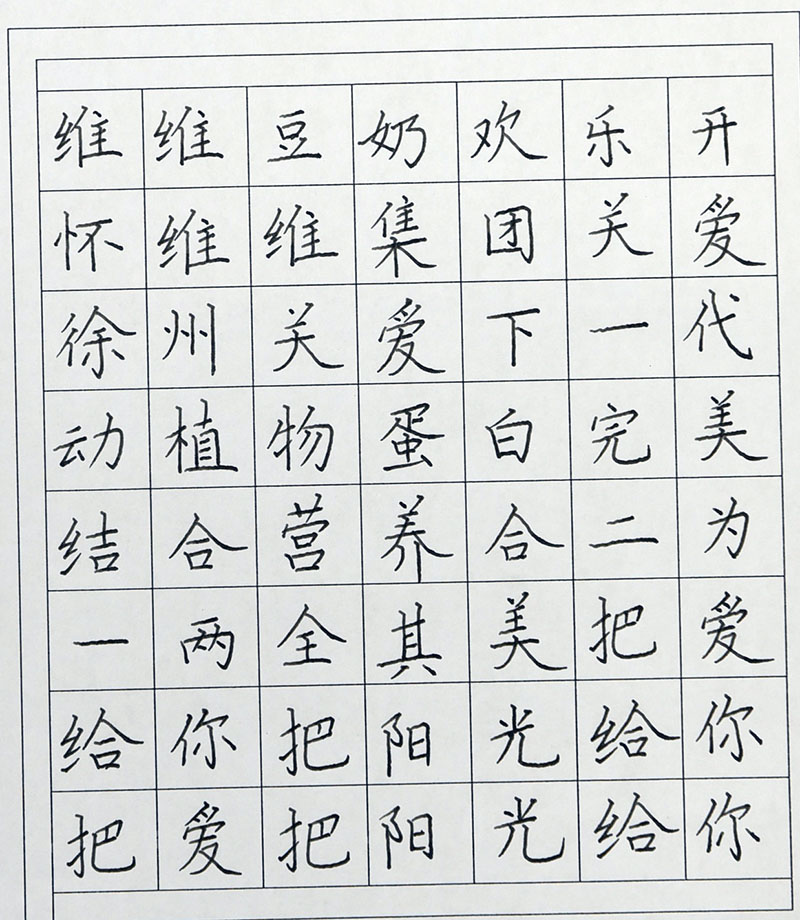 维维豆奶欢乐开
怀维维集团关爱
徐州关爱下一代
动植物蛋白完美
结合营养合二为
一两全其美把爱
给你把阳光给你
把爱把阳光给你